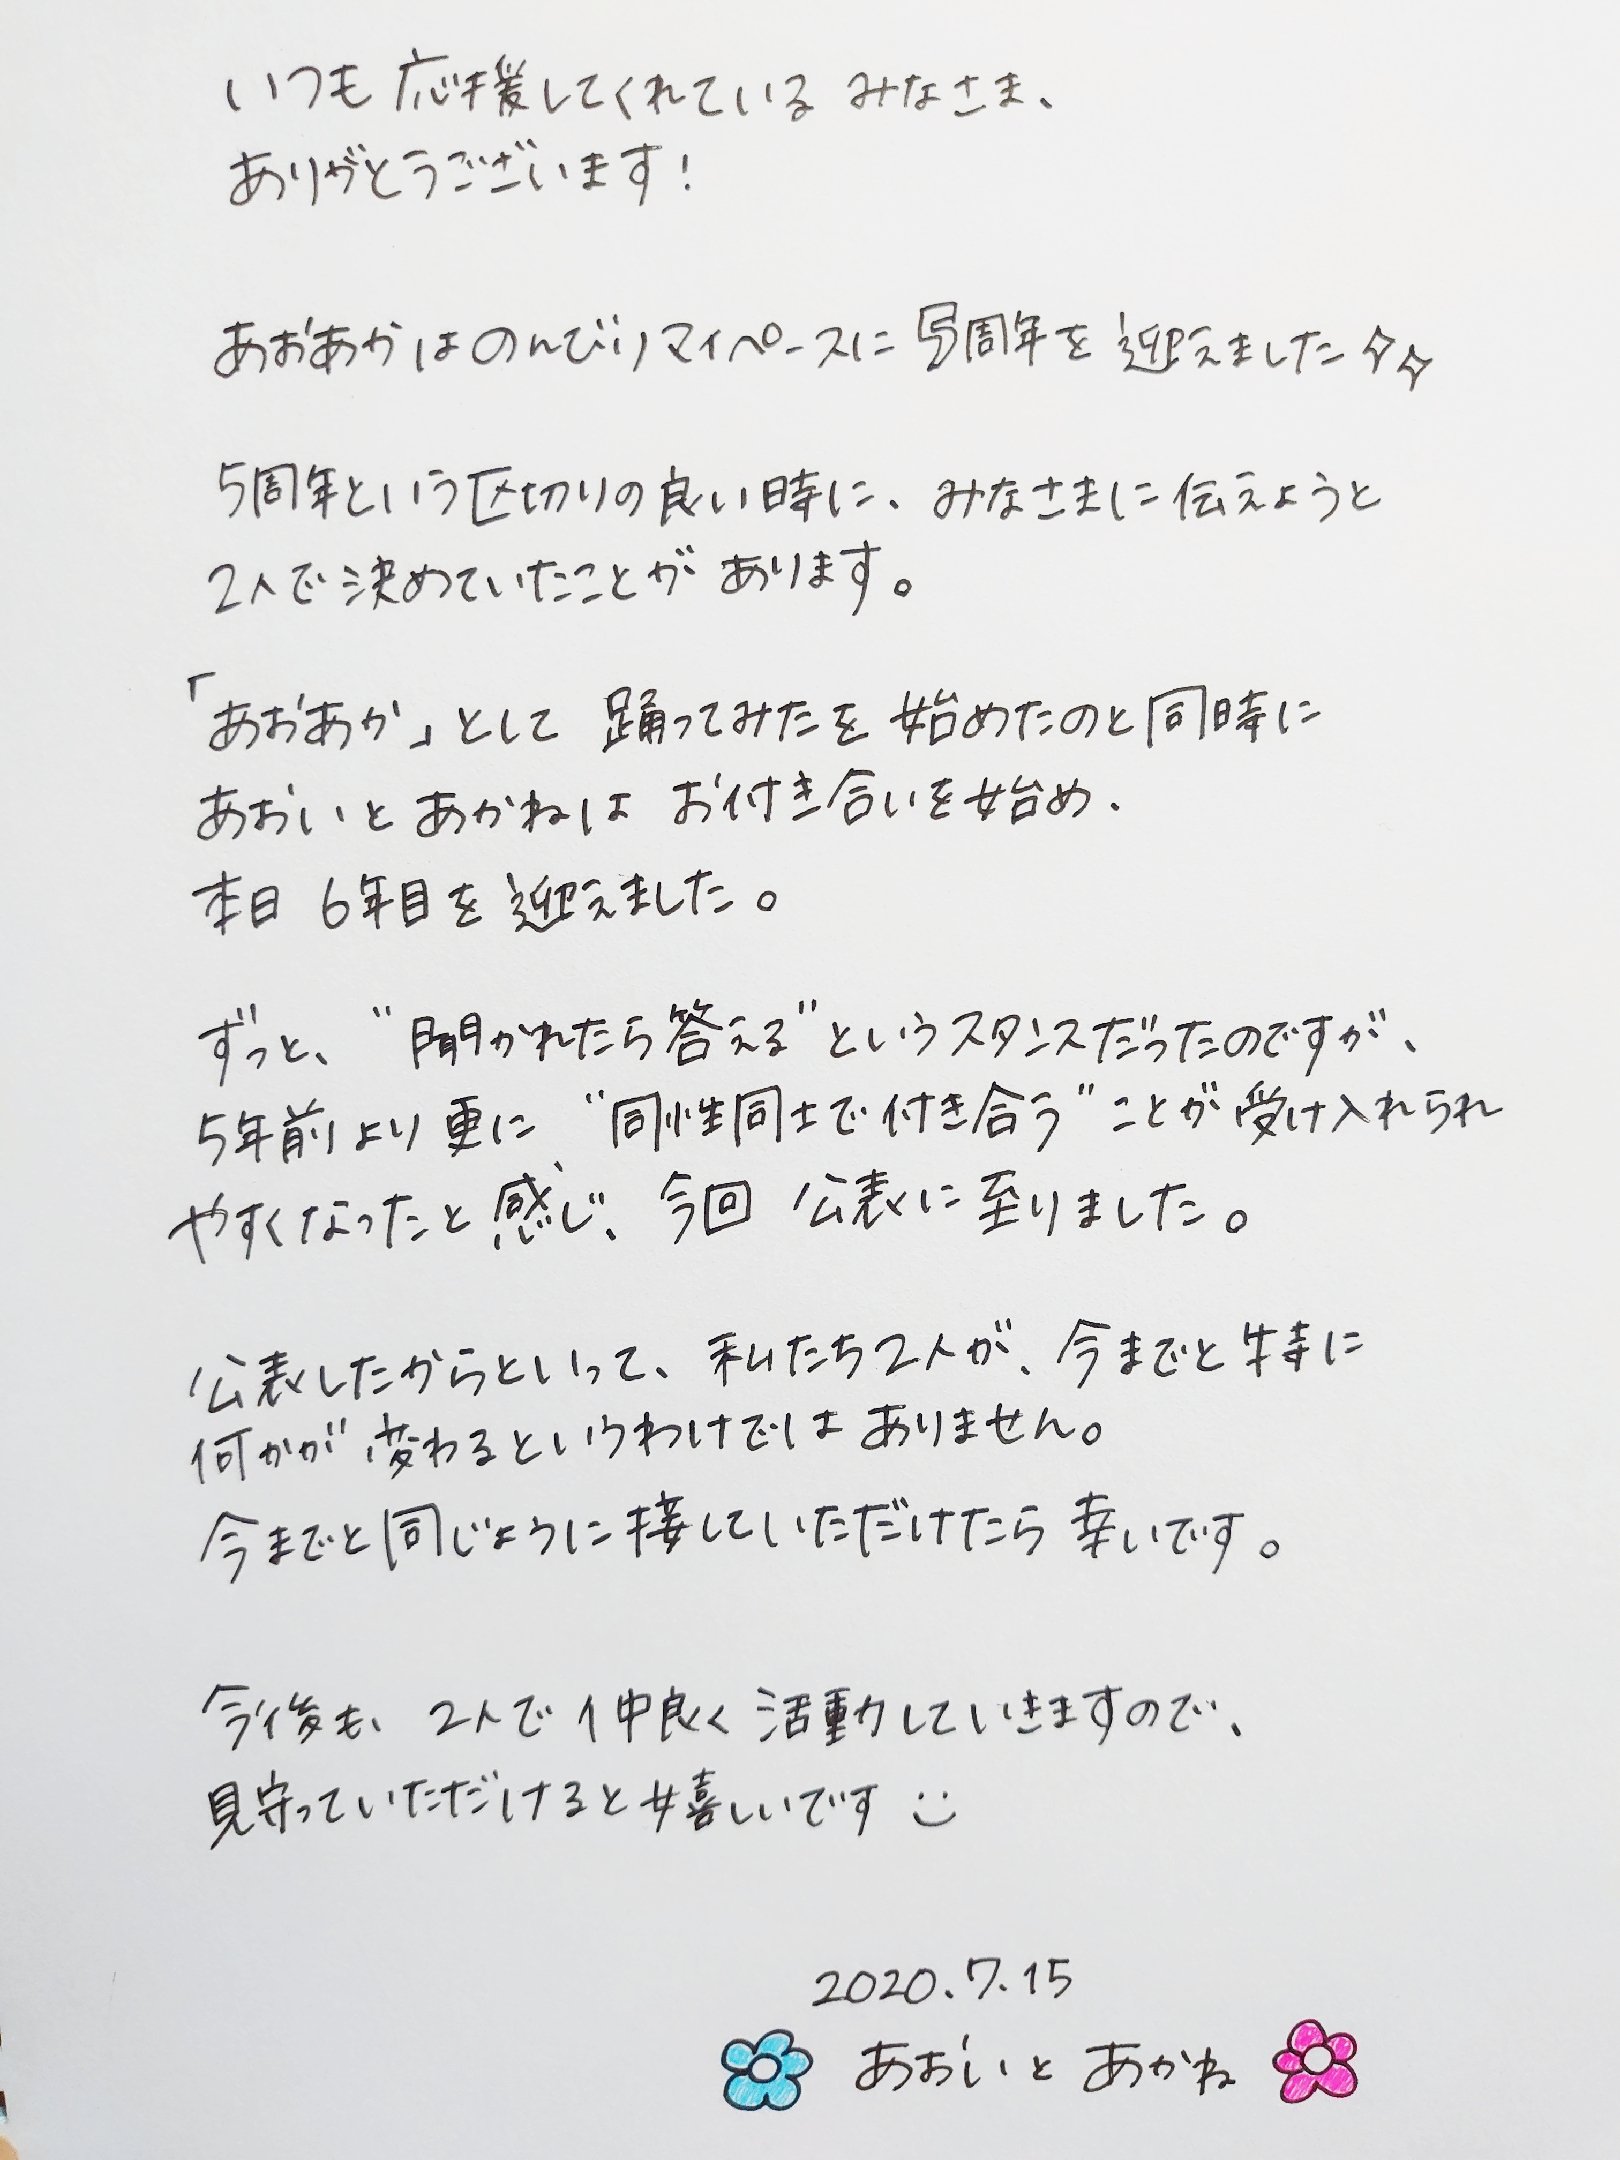 いつも応援してくれているみなさま、
ありがとうございます！
あおあかはのんびりマイペースに5周年を迎えました✧✧
5周年という区切りの良い時に、みなさまに伝えようと
2人で決めていたことがあります。
「あおあか」として踊ってみたを始めたのと同時に
あおいとあかねはお付き合いを始め、
本日6年目を迎えました。
ずっと、“聞かれたら答える”というスタンスだったのですが、
5年前より更に“同性同士で付き合う”ことが受け入れられ
やすくなったと感じ、今回公表に至りました。
公表したからといって、私たち2人が、今までと特に
何かが変わるというわけではありません。
今までと同じように接していただけたら幸いです。
今後も、2人で仲良く活動していきますので、
見守っていただけると嬉しいです
2020.7.15
あおいとあかね